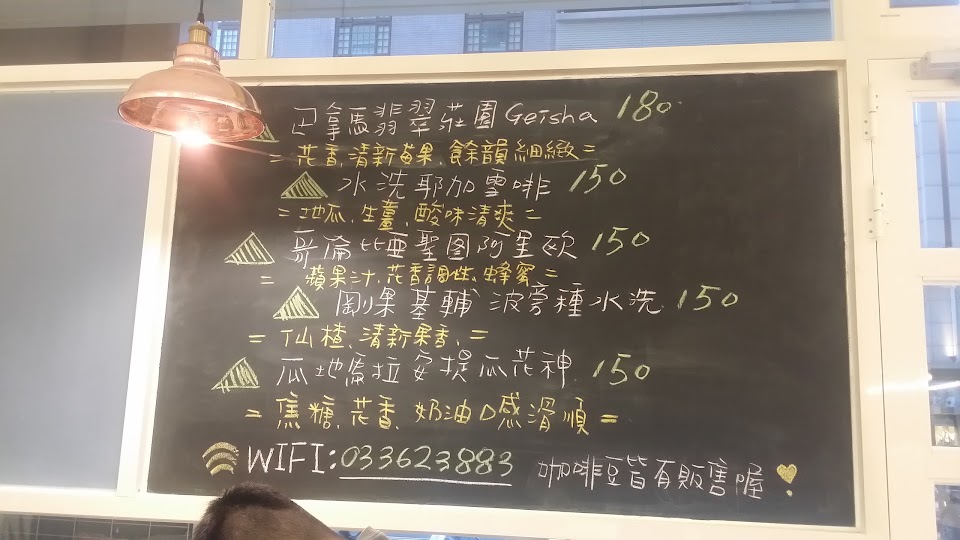 巴拿馬翡翠莊園Geisha 180
=花香.清新莓果.餘韻細緻=
水洗耶加雪啡 150
=地瓜.生薑.酸味清爽=
哥倫比亞聖图阿里歐 150
=蘋果汁.花香調性.蜂蜜=
剛果基輔 波旁種水洗 150
=仙楂.清新果香.=
瓜地馬拉安提瓜花神 150
=焦糖.花香.奶油口感滑順=
WIFI:033623883 咖啡豆皆有販售喔